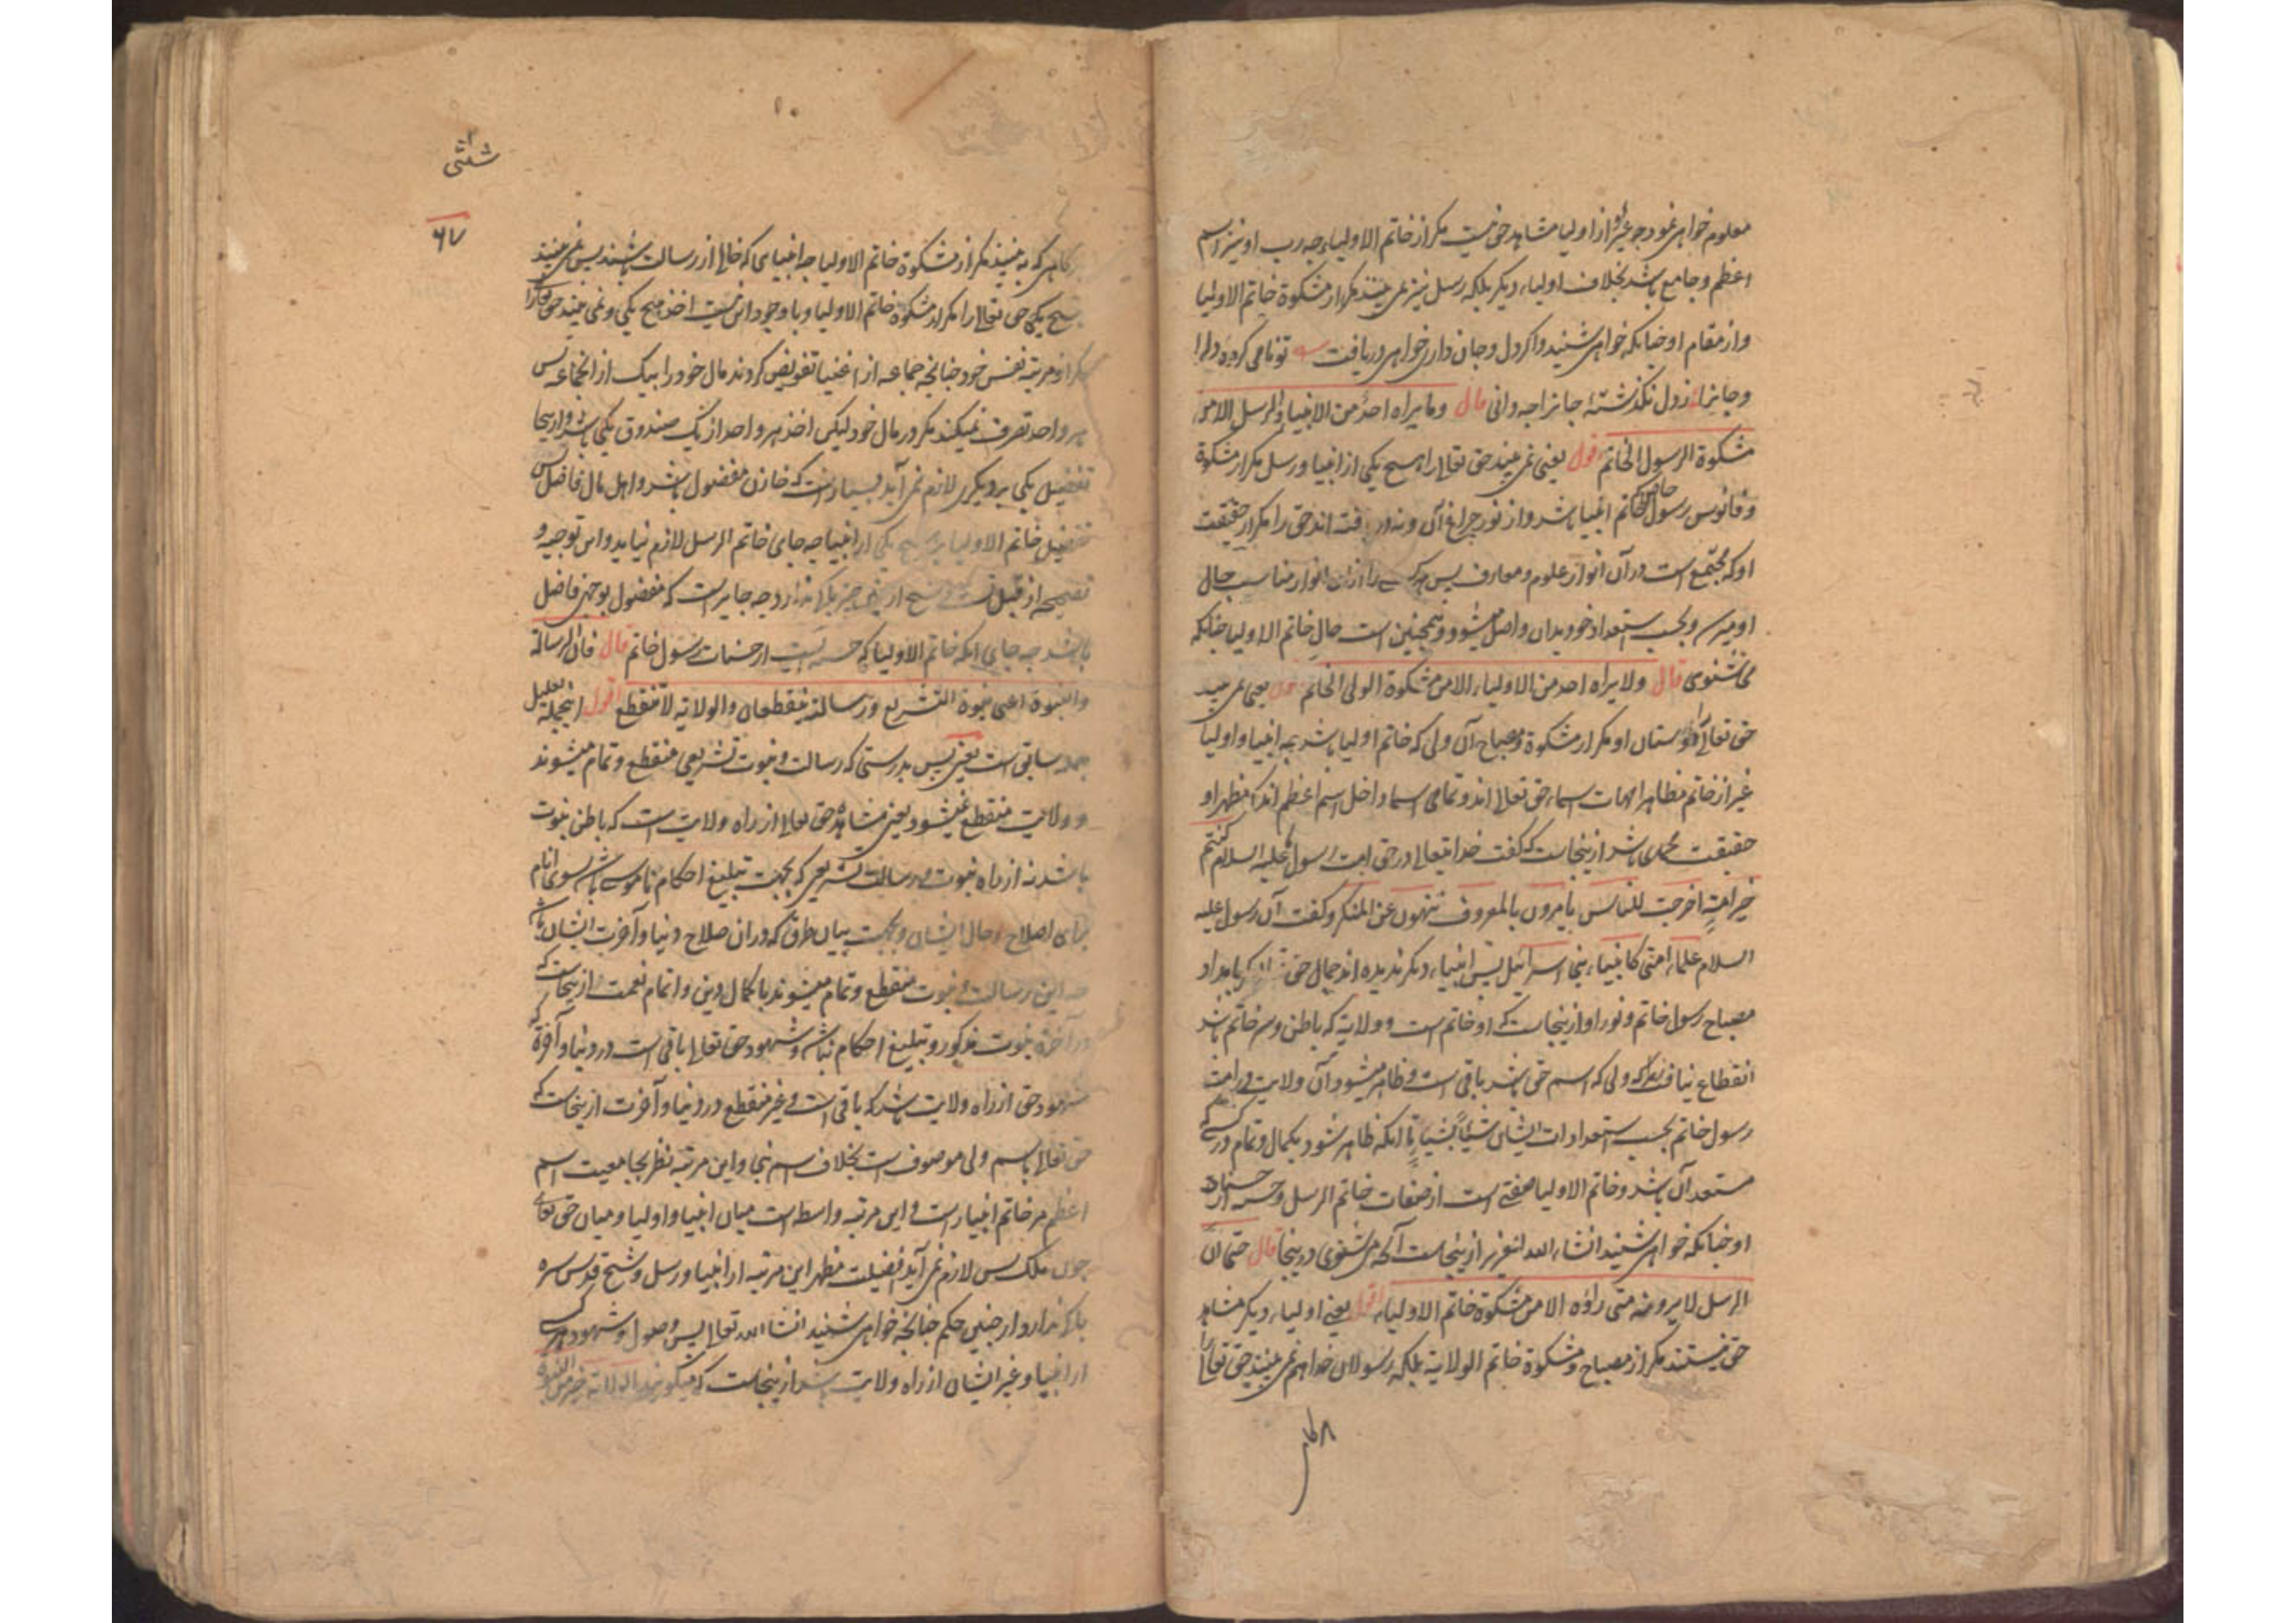 معلوم خواهی نمود چو غیر او از اولیا مشاهد حق نیست مکر از خاتم الاولیاء چه رب او نیز اسم
اعظم و جامع باشد بخلاف اولیاء دیکر بلکه رسل نیز نمی بینند مکر از مشکوة خاتم الاولیا
و از مقام او چنانکه خواهی شنید و اکر دل و جان داری خواهی دریافت تو نامی کرده دل را
و جانرا ز دل نکذشتهٔ جانرا چه دانی قال و ما یراه احد من الانبیاء و الرسل الا من
مشکوة الرسول الخاتم اقول یعنی نمی بیند حق تعالی را هیچ یکی از انبیا و رسل مکر از مشکوة
و فانوس رسول خاتم که خاتم انبیا باشد و از نور چراغ آن و در نیافته اند حق را مکر از حقیقت
او که مجتمع است در آن انوار علوم و معارف پس هر کسے را از آن انوار مناسب حال
او میرسد و بحسب استعداد خود بدان واصل میشود و همچنین است حال خاتم الاولیا چنانکه
می شنوی قال و لا یراه احد من الاولیاء الا من مشکوة الولی الخاتم اقول یعنی نمی بیند
حق تعالی را دوستان او مکر از مشکوة و مصباح آن ولی که خاتم اولیا باشد چه انبیا و اولیا
غیر از خاتم مظاهر امهات اسماء حق تعالی اند و تمامی اسما داخل اسم اعظم اند که مظهر او
حقیقت محمدی باشد ازینجاست که کفت خدایتعالی در حق امت رسول علیه السلام کنتم
خیر امةٍ اخرجت للناس یامرون بالمعروف تنهون عن المنکر و کفت آن رسول علیه
السلام علماء امتی کانبیاء بنی اسرائیل پس انبیاء دیکر ندیده اند جمال حق را مکر بامداد
مصباح رسول خاتم و نور او ازینجاست که او خاتم است و ولایة که باطن و سر خاتم باشد
انقطاع نیافته که ولی که اسم حق باشد باقی است و ظاهر میشود آن ولایت در امت
رسول خاتم بحسب استعدادات ایشان شیئاً بشیئاٍ تا انکه ظاهر شود بکمال و تمام در کسے که
مستعد آن باشد و خاتم الاولیا صفتے است از صفات خاتم الرسل و حسنه از حسنات
او چنانکه خواهی شنید انشاء الله العزیز ازینجاست آنکه می شنوی درینجا قال حتی ان
الرسل لا یرونه متی راؤه الا من مشکوة خاتم الاولیاء اقول یعنی اولیاء دیکر مشاهد
حق نیستند مکر از مصباح و مشکوة خاتم الولایة بلکه رسولان خدا هم نمی بینند حق تعالی را
۶۷
هرکاهی که به بینند مکر از مشکوة خاتم الاولیا چه انبیای که خالی از رسالت باشند پس نمی بینند
هیچ یکی حق تعالی را مکر از مشکوة خاتم الاولیا و باوجود این نیست اخذ هیچ یکی و نمی بیند حق تعالی را
مکر از مرتبه نفس خود چنانچه جماعه از اغنیا تفویض کردند مال خود را بیک از انجماعه پس
هر واحد تصرف نمیکند مکر در مال خود لیکن اخذ هر واحد از یک صندوق یکی باشد و ازینجا
تفضیل یکی بر دیکری لازم نمی آید بسیار است که خازن مفضول باشد و اهل مال فاضل پس
تفضیل خاتم الاولیا بر هیچ یکی از انبیا چه جای خاتم الرسل لازم نیاید و این توجیه و
باشد چه جای انکه خاتم الاولیا که حسنه ایست از حسنات رسول خاتم قال فان الرسالة
و النبوة اعنی نبوة التشریع و رسالته منقطعان و الولایة لا تنقطع اقول اینجمله تعلیل
جمله سابق است یعنی پس بدرستی که رسالت و نبوت تشریعی منقطع و تمام میشوند
و ولایت منقطع نمیشود یعنی مشاهدهٔ حق تعالی از راه ولایت است که باطن نبوت
باشد نه از راه نبوت و رسالت تشریعی که بجهت تبلیغ احکام ناموسے باشد بسوی انام
برای اصلاح حال ایشان و بجهت بیان طرق که در ان صلاح دنیا و آخرت ایشان باشد
چه این رسالت و نبوت منقطع و تمام میشوند باکمال دین و اتمام نعمت ازینجاست که
در آخرة نبوت مذکور و تبلیغ احکام نباشد و شهود حق تعالی باقی است در دنیا و آخرة که
شهود حق از راه ولایت باشد که باقی است و غیر منقطع در دنیا و آخرت ازینجاست که
حق تعالی باسم ولی موصوف است بخلاف اسم نبی و این مرتبه نظر بجامعیت اسم
اعظم مر خاتم انبیا راست و این مرتبه واسطه است میان انبیا و اولیا و میان حق تعالی
چون ملک پس لازم نمی آید افضیلت مظهر این مرتبه از انبیا و رسل و شیخ قدس سره
باک ندارد از چنین حکم چنانچه خواهی شنید انشاء الله تعالی پس وصول و شهود هر کسے
از انبیا و غیر ایشان از راه ولایت باشد ازینجاست که میکویند الولایة خیر من النبوة